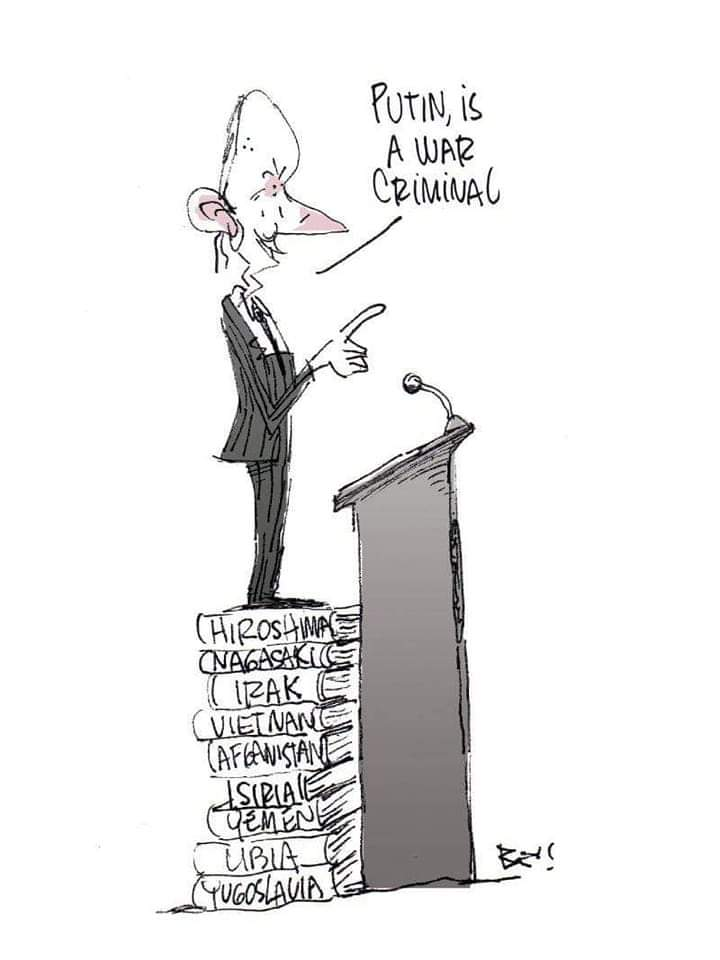 PUTIN, iS
A WAR
CRiMiNAL
HIROSHIMA
NAGASAKI
IRAK
VIETNAN
AFGANISTAN
SIRIA
YEMEN
LIBIA
YUGOSLAVIA